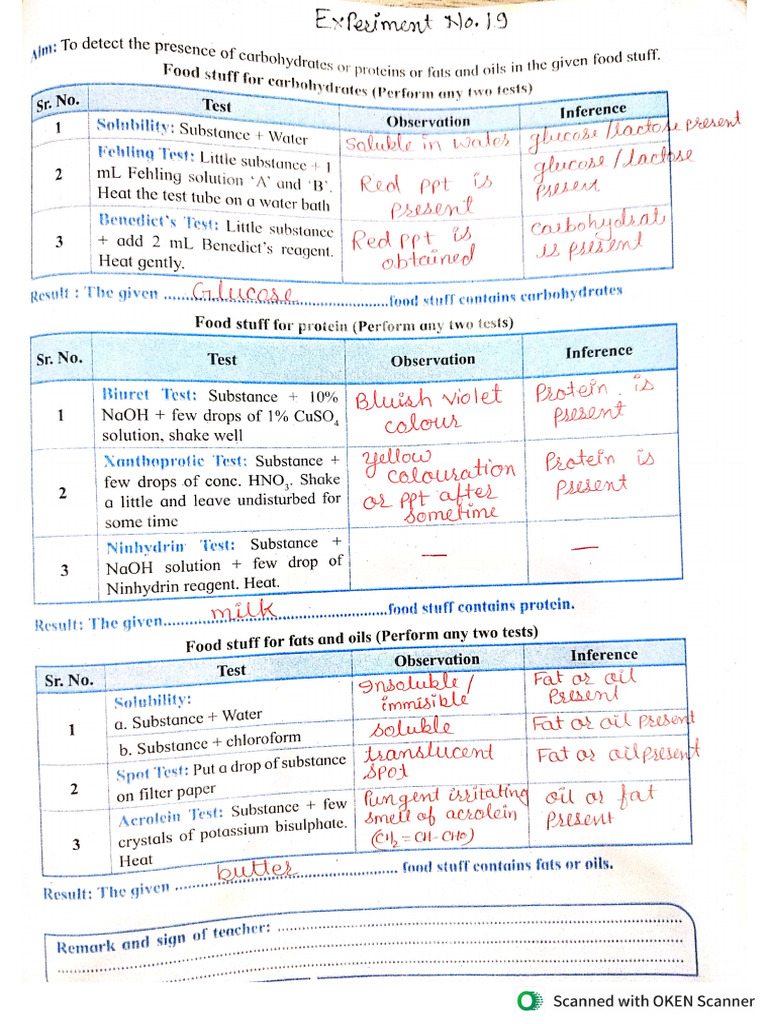 Experiment No. 19
Aim: To detect the presence of carbohydrates or proteins or fats and oils in the given food stuff.
Food stuff for carbohydrates (Perform any two tests)
Sr. No. Test Observation Inference
1 Solubility: Substance + Water Soluble in water glucose/lactose present
2 Fehling Test: Little substance + 1
mL Fehling solution 'A' and 'B'.
Heat the test tube on a water bath
Red ppt is
present
glucose/lactose
present
3 Benedict's Test: Little substance
+ add 2 mL Benedict's reagent.
Heat gently.
Red ppt is
obtained
carbohydrat
is present
Result : The given ......Glucose......food stuff contains carbohydrates
Food stuff for protein (Perform any two tests)
Sr. No. Test Observation Inference
1 Biuret Test: Substance + 10%
NaOH + few drops of 1% CuSO₄
solution, shake well
Bluish violet
colour
Protein is
present
2 Xanthoprotic Test: Substance +
few drops of conc. HNO₃. Shake
a little and leave undisturbed for
some time
yellow
colouration
or ppt after
sometime
Protein is
present
3 Ninhydrin Test: Substance +
NaOH solution + few drop of
Ninhydrin reagent. Heat.
—
—
Result: The given......milk......food stuff contains protein.
Food stuff for fats and oils (Perform any two tests)
Sr. No. Test Observation Inference
1 Solubility:
a. Substance + Water
Insoluble/
immisible
Fat or oil
Present
b. Substance + chloroform soluble Fat or oil present
2 Spot Test: Put a drop of substance
on filter paper
translucent
spot
Fat or oil present
3 Acrolein Test: Substance + few
crystals of potassium bisulphate.
Heat
Pungent irritating
smell of acrolein
(CH₂=CH-CHO)
oil or fat
Present
Result: The given ......butter...... food stuff contains fats or oils.
Remark and sign of teacher: ......
Scanned with OKEN Scanner